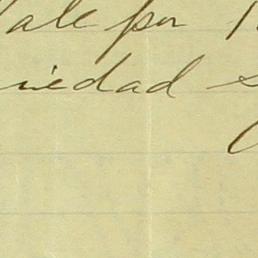 ale por
iedad